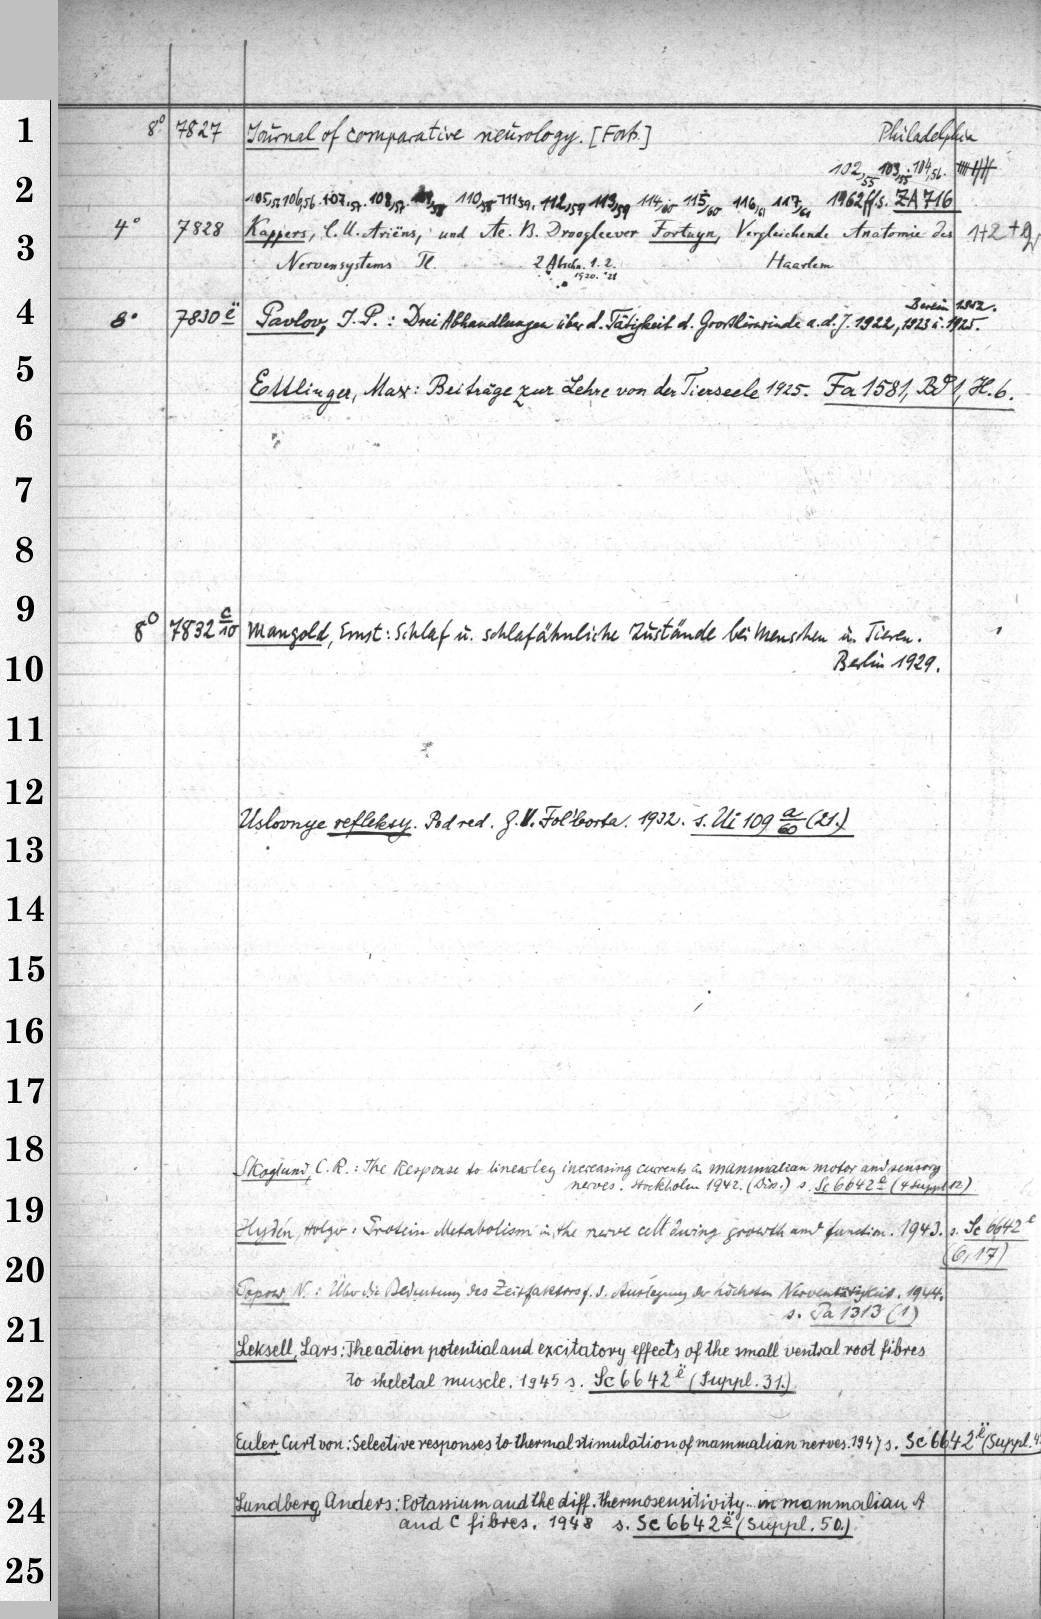 1
2
3
4
5
6
7
8
9
10
11
12
13
14
15
16
17
18
19
20
21
22
23
24
25
8° 7827 Journal of comparative neurology. [Forts.] Philadelphia
102,55 103,55. 104,56.
105,56 106,56. 107,57. 108,57. 110,58 111,59. 112,59 113,59 114/60 115/60 116,61 117,61 1962ff s. ZA 716
4° 7828 Kappers, C. U. Ariëns, und Ae. B. Droogleever Fortuyn, Vergleichende Anatomie des 1+2
Nervensystems Tl. 2 Abschn. 1. 2. Haarlem
1920. '21
Berlin 1952.
8° 7830 ë Pavlov, I. P.: Drei Abhandlungen über d. Tätigkeit d. Großhirnrinde a. d. J. 1922, 1923 u. 1925.
Ettlinger, Max: Beiträge zur Lehre von der Tierseele 1925. Fa 1581, Bd 1, H. 6.
8° 7832 c/10 Mangold, Ernst: Schlaf u. schlafähnliche Zustände bei Menschen u. Tieren.
Berlin 1929.
Uslovnye refleksy. Pod red. G. V. Fol'borta. 1932. s. Ui 109 a/60 (21.)
Skoglund, C. R.: The Response to linearley increasing currents in mammalian motor and sensory
nerves. Stockholm 1942. (Diss.) s. Sc 6642 ë (4 Suppl 12)
Hydén, Holger: Protein Metabolism in the nerve cell during growth and function. 1943. s. Sc 6642 ë
(6, 17)
Popow N.: Über die Bedeutung des Zeitfaktors f. d. Auslegung der höchsten Nerventätigkeit. 1944.
s. Pa 1313 (1)
Leksell, Lars: The action potential and excitatory effects of the small ventral root fibres
to skeletal muscle. 1945 s. Sc 6642 ë (Suppl. 31.)
Euler, Curt von: Selective responses to thermal stimulation of mammalian nerves. 1947 s. Sc 6642 ë (Suppl. 4
Lundberg, Anders: Potassium and the diff. thermosensitivity in mammalian A
and C fibres. 1948 s. Sc 6642 ë (Suppl. 50.)